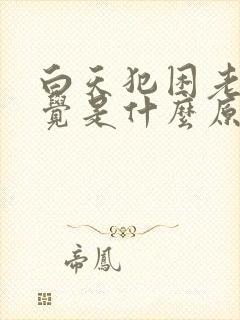 白天犯困老
覺是什麼原
帝鳳